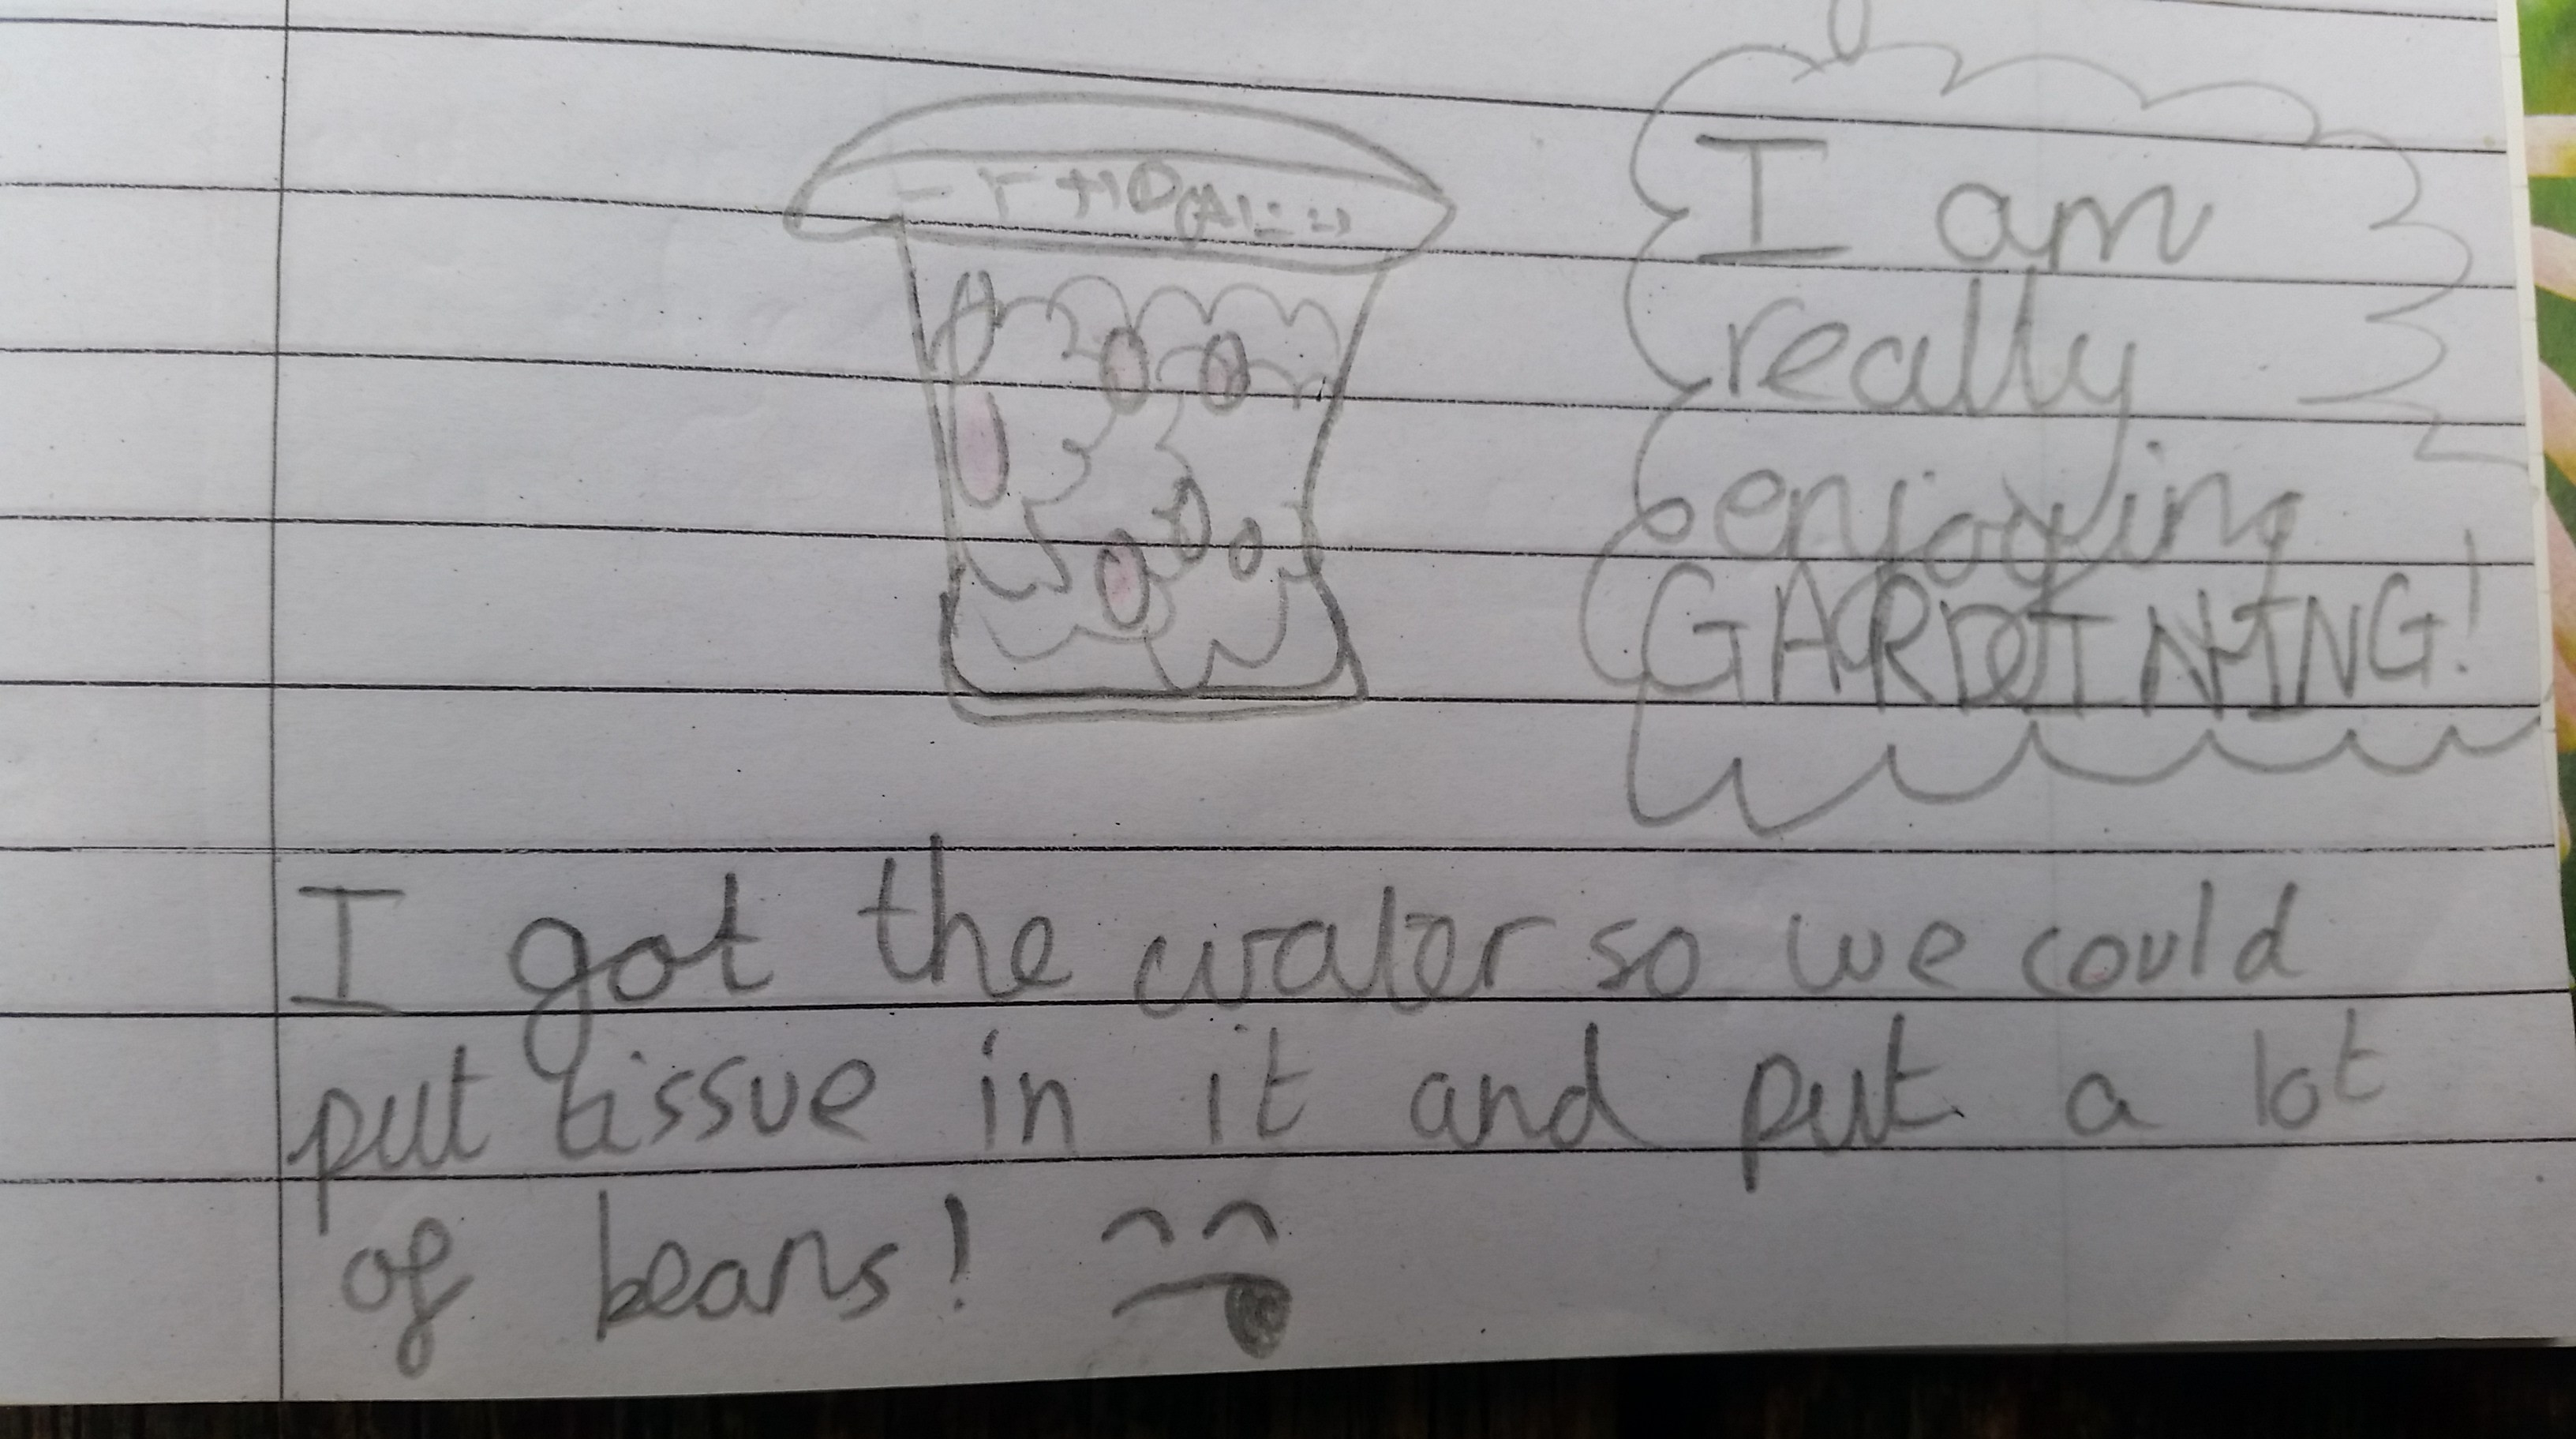 I am
really
enjoying
GARDINING!
I got the water so we could
put tissue in it and put a lot
of beans!